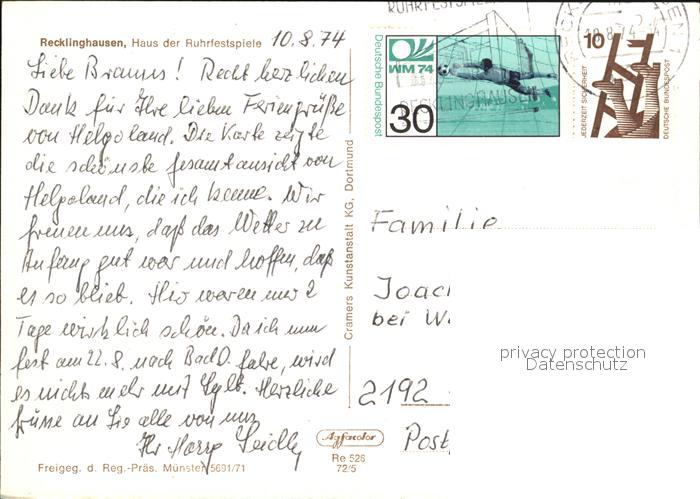 RUHRFESTSPIELE
Recklinghausen, Haus der Ruhrfestspiele 10.8.74
Liebe Brauns! Recht herzlichen
Dank für Ihre lieben Feriengrüße
von Helgoland. Die Karte zeigte
die schönste Gesamtansicht von
Helgoland, die ich kenne. Wir
freuen uns, daß das Wetter zu
Anfang gut war und hoffen, daß
es so blieb. Hier waren nur 2
Tage wirklich schön. Da ich nun
fest am 22.8. nach Bad O. fahre, wird
es nichts mehr mit Sylt. Herzliche
Grüsse an Sie alle von uns
Ihr Harry
Freigeg. d. Reg.-Präs. Münster 5691/71
Cramers Kunstanstalt KG, Dortmund
Agfacolor
Re 526
72/5
Deutsche Bundespost
WM 74
30
RECKLINGHAUSEN
10
JEDERZEIT SICHERHEIT
DEUTSCHE BUNDESPOST
Familie
Joac
bei W
privacy protection
Datenschutz
2192
Post